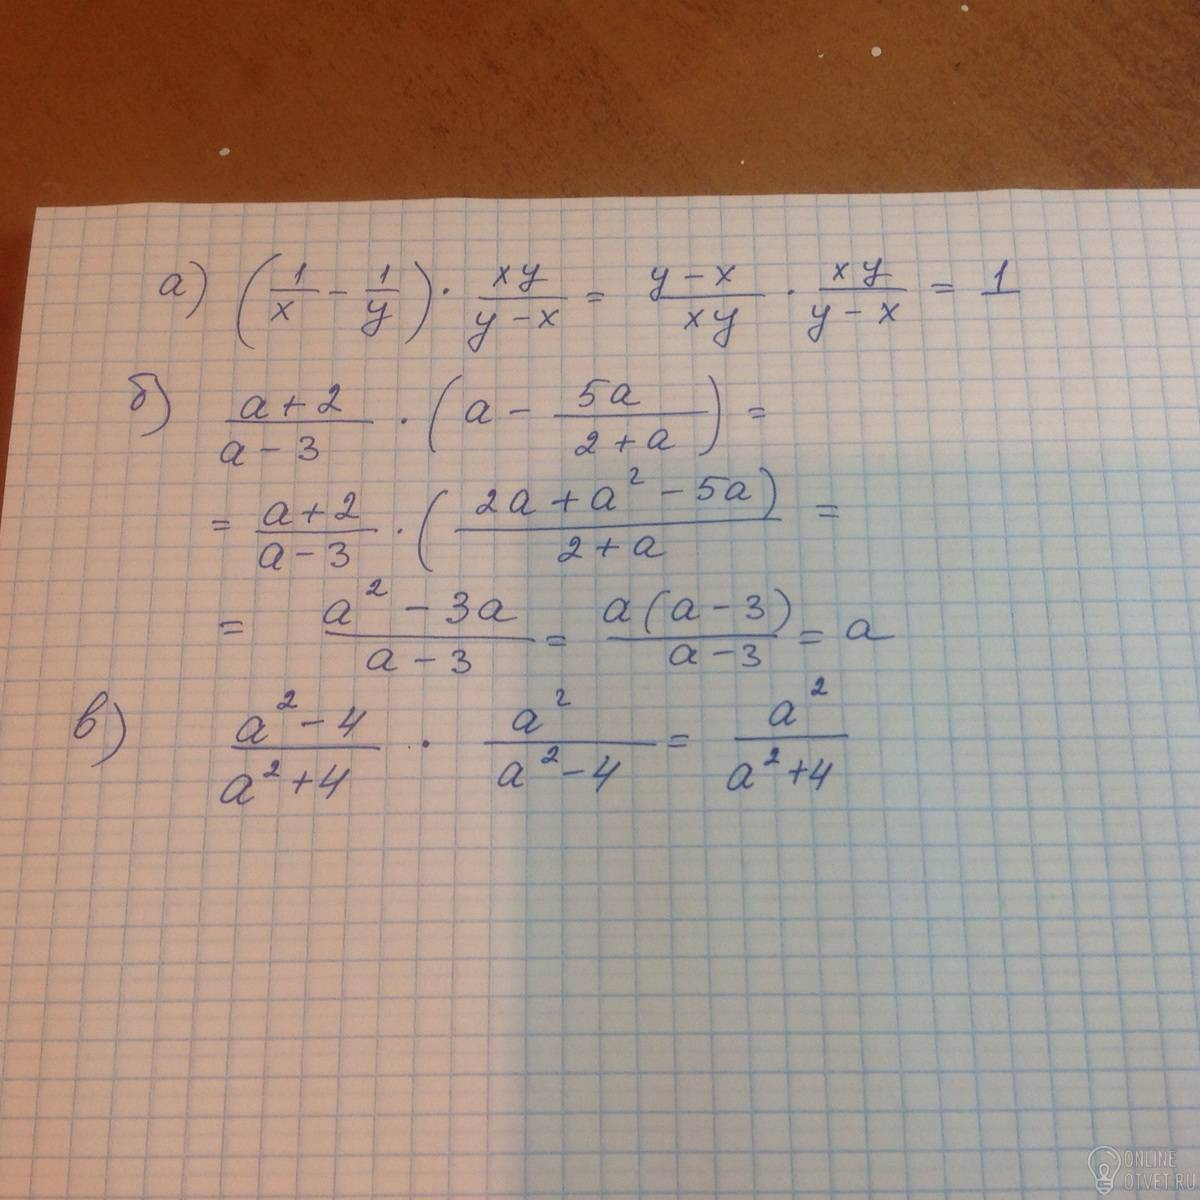 а) (1/x - 1/y) · xy/(y-x) = (y-x)/(xy) · xy/(y-x) = 1
б) (a+2)/(a-3) · (a - 5a/(2+a)) =
= (a+2)/(a-3) · ((2a+a²-5a)/(2+a)) =
= (a²-3a)/(a-3) = a(a-3)/(a-3) = a
в) (a²-4)/(a²+4) · a²/(a²-4) = a²/(a²+4)
ONLINE
OTVET.RU